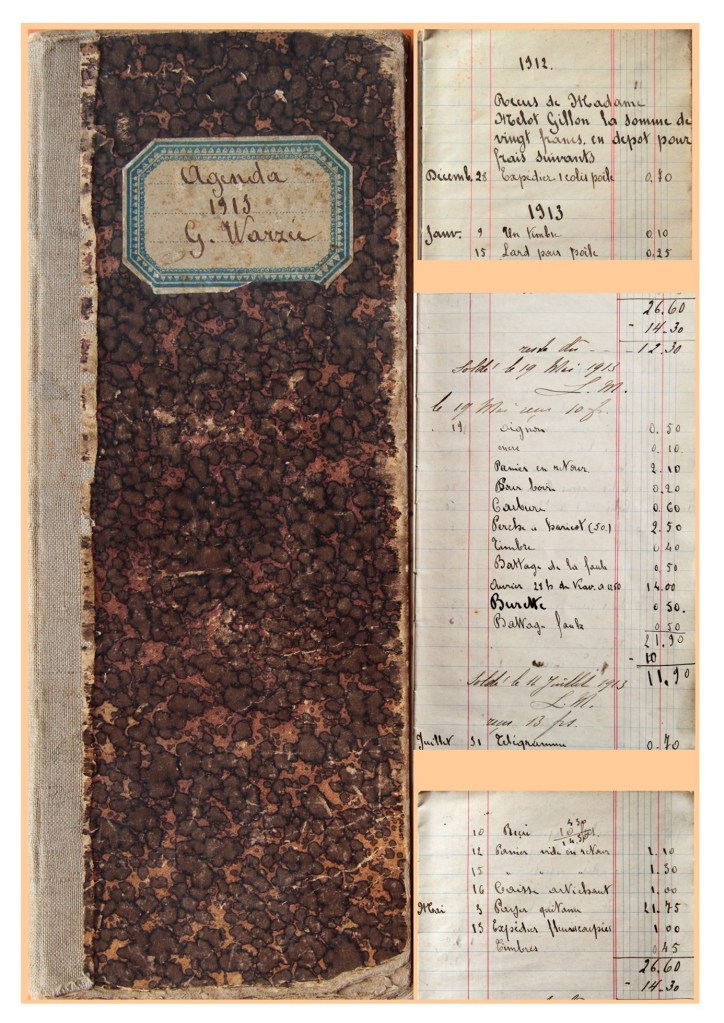 Agenda
1913
G. Warzée
1912.
Recus de Madame
Melot Gillon la somme de
vingt francs, en depot pour
frais suivants
Décemb. 28 Expédier 1 colis poste 0.70
1913
Janv. 9 Un timbre 0.10
15 Lard pour poële 0.25
26.60
- 14.30
reste dû - 12.30
Soldé le 19 Mai 1913
L. M.
le 19 Mai reçu 10 fr.
19 oignon 0.50
0.10
Panier en retour 2.10
0.20
Carbure 0.60
Perche a haricot (50.) 2.50
Timbre 0.40
Battage de la faulx 0.50
Ouvrier 28 h de trav. a 0.50 14.00
Burette 0.50.
Battage faulx 0.50
21.90
- 10
11.90
Soldé le 14 Juillet 1913
L. M.
reçu 13 frs.
Juillet 31 Télégramme 0.70
10 Reçu
12 Panier vide en retour 1.10
15 " " " 1.30
16 Caisse artichaut 1.00
Mai 3 Payer 21.75
13 Expédier 1.00
Timbres 0.45
26.60
- 14.30